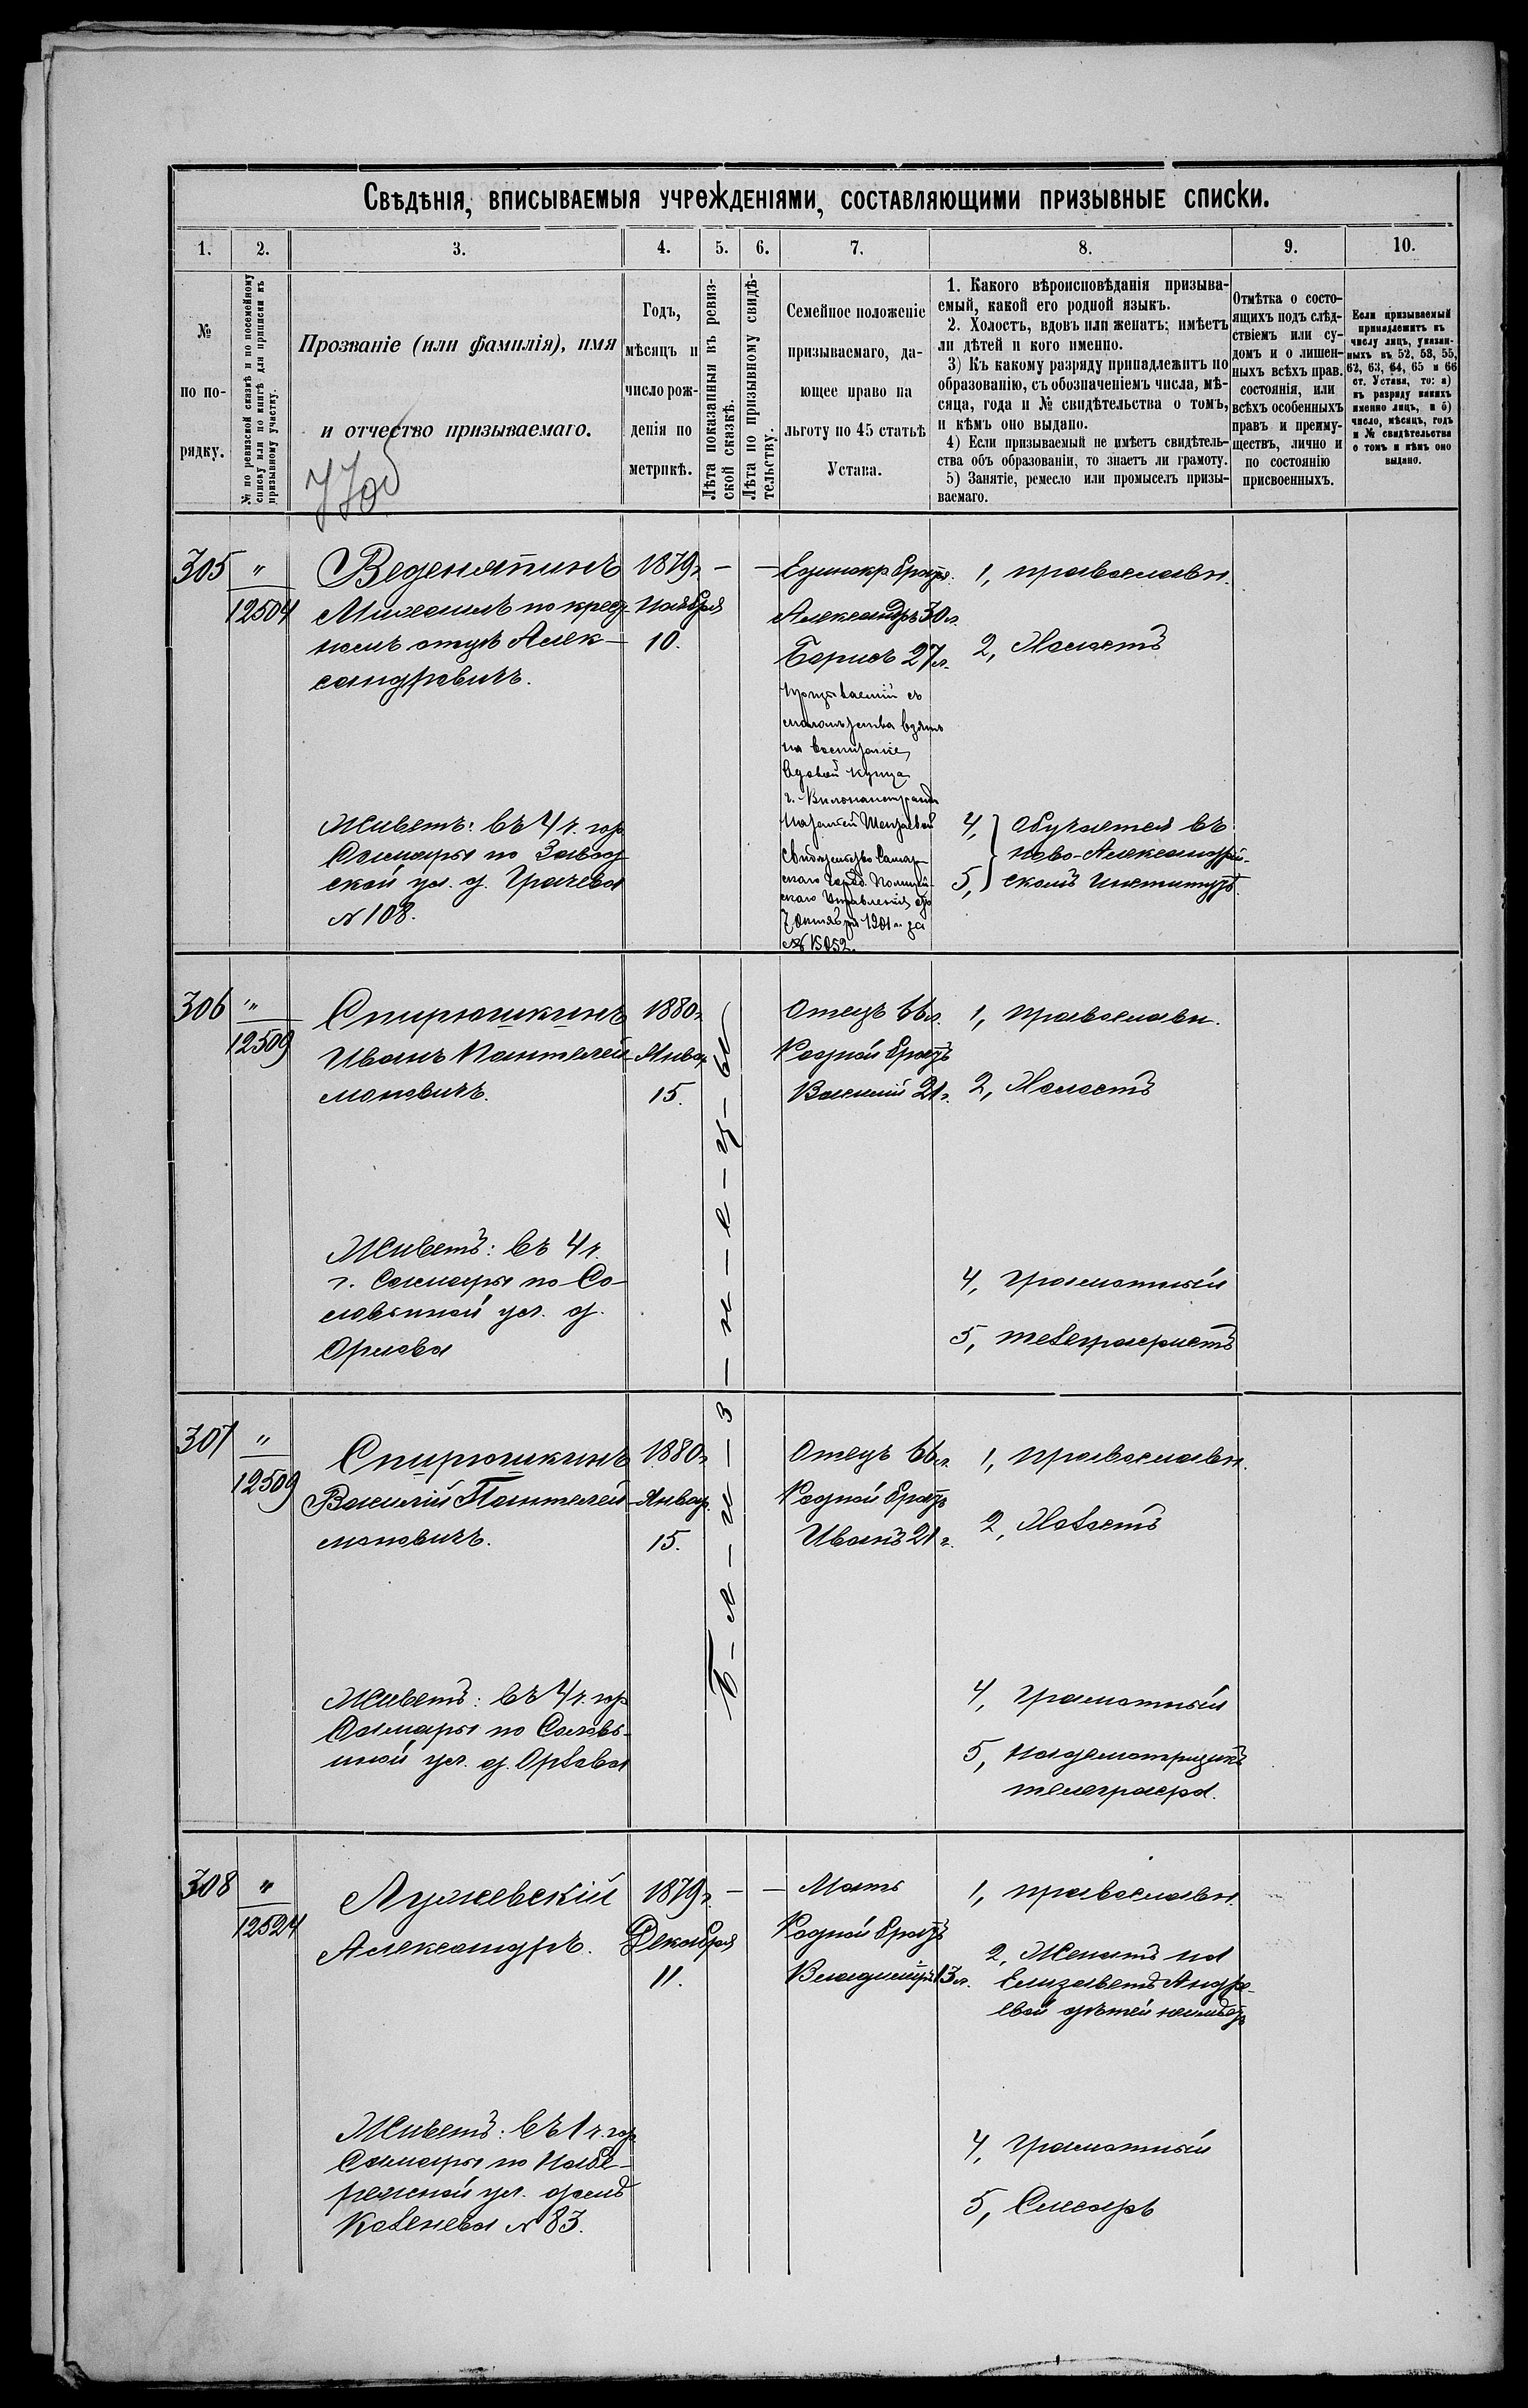 Свѣдѣнія, вписываемыя учрежденіями, составляющими призывные списки.
1. 2. 3. 4. 5. 6. 7. 8. 9. 10.
№
по по-
рядку.
№ по ревизской сказкѣ и по посемейному
списку или по книгѣ для приписки къ
призывному участку.
Прозваніе (или фамилія), имя
и отчество призываемаго.
Годъ,
мѣсяцъ и
число рож-
денія по
метрикѣ.
Лѣта показанныя въ ревиз-
ской сказкѣ.
Лѣта по призывному свидѣ-
тельству.
Семейное положеніе
призываемаго, да-
ющее право на
льготу по 45 статьѣ
Устава.
1. Какого вѣроисповѣданія призыва-
емый, какой его родной языкъ.
2. Холостъ, вдовъ или женатъ; имѣетъ
ли дѣтей и кого именно.
3) Къ какому разряду принадлежитъ по
образованію, съ обозначеніемъ числа, мѣ-
сяца, года и № свидѣтельства о томъ,
и кѣмъ оно выдано.
4) Если призываемый не имѣетъ свидѣтель-
ства объ образованіи, то знаетъ ли грамоту.
5) Занятіе, ремесло или промыселъ призы-
ваемаго.
Отмѣтка о состо-
ящихъ подъ слѣд-
ствіемъ или су-
домъ и о лишен-
ныхъ всѣхъ прав.
состоянія, или
всѣхъ особенныхъ
правъ и преиму-
ществъ, лично и
по состоянію
присвоенныхъ.
Если призываемый
принадлежитъ къ
числу лицъ, указан-
ныхъ въ 52, 53, 55,
62, 63, 64, 65 и 66
ст. Устава, то: а)
къ разряду какихъ
именно лицъ, и б)
число, мѣсяцъ, годъ
и № свидѣтельства
о томъ и кѣмъ оно
выдано.
305 "
12504
Веденяпинъ
Михаилъ по крест-
ном отцѣ Алек-
сандровичъ.
Живетъ: въ 4 ч. гор.
Самары по Завод-
ской ул. д. Грачева
№ 108.
1879 г.
Ноября
10.
— —
Единокр братья.
Александръ 30 л.
Борисъ 27 л.
Призываемый съ
малолѣтства взятъ
на воспитаніе
вдовой купца
Свидѣтельство Самар-
скаго Город. Полицей-
скаго Управленія отъ
7 Октября 1901 г. за
№ 15052.
1, православн.
2, Холостъ
4, } Обучается въ
Ново-Александрій-
5, } скомъ Институтѣ.
306 "
12509
Спирюшкинъ
Иванъ Пантелей-
моновичъ.
Живетъ: въ 4 ч.
г. Самары по Со-
ловьиной ул. д.
Орлова
1880 г.
Январ.
15.
Отецъ 66 л.
Родной братъ
Василій 21 г.
1, Православн.
2, Холостъ
4, Грамотный
5, телеграфистъ
Б-л-и-з-н-е-ц-ы
307 "
12509
Спирюшкинъ
Василій Пантелей-
моновичъ.
Живетъ: въ 4 ч. гор.
Самары по Соловь-
иной ул. д. Орлова
1880 г.
Январ.
15.
Отецъ 66 л.
Родной братъ
Иванъ 21 г.
1, Православн.
2, Холостъ
4, Грамотный
5, Надсмотрщикъ
телеграфа.
308 "
12524
Лужевскій
Александръ.
Живетъ: въ 1 ч. гор.
Самары по Набе-
режной ул. домъ
Коленева № 83.
1879 г.
Декабря
11.
— —
Мать
Родной братъ
Владиміръ 13 л.
1, православн.
2, Женатъ на
Елизаветѣ Андре-
евой дѣтей неимѣетъ
4, Грамотный
5, Слесарь